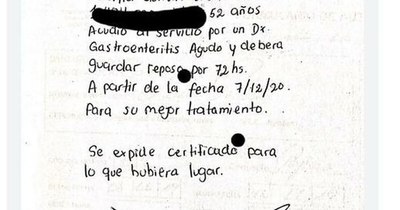 52 años
Acudio al servicio por un Dx.
Gastroenteritis Agudo y debera
guardar reposo por 72hs.
A partir de la fecha 7/12/20.
Para su mejor tratamiento.
Se expide certificado para
lo que hubiera lugar.